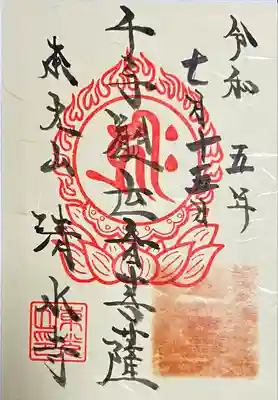 令和五年
七月十五日
千手観世音菩薩
清水寺